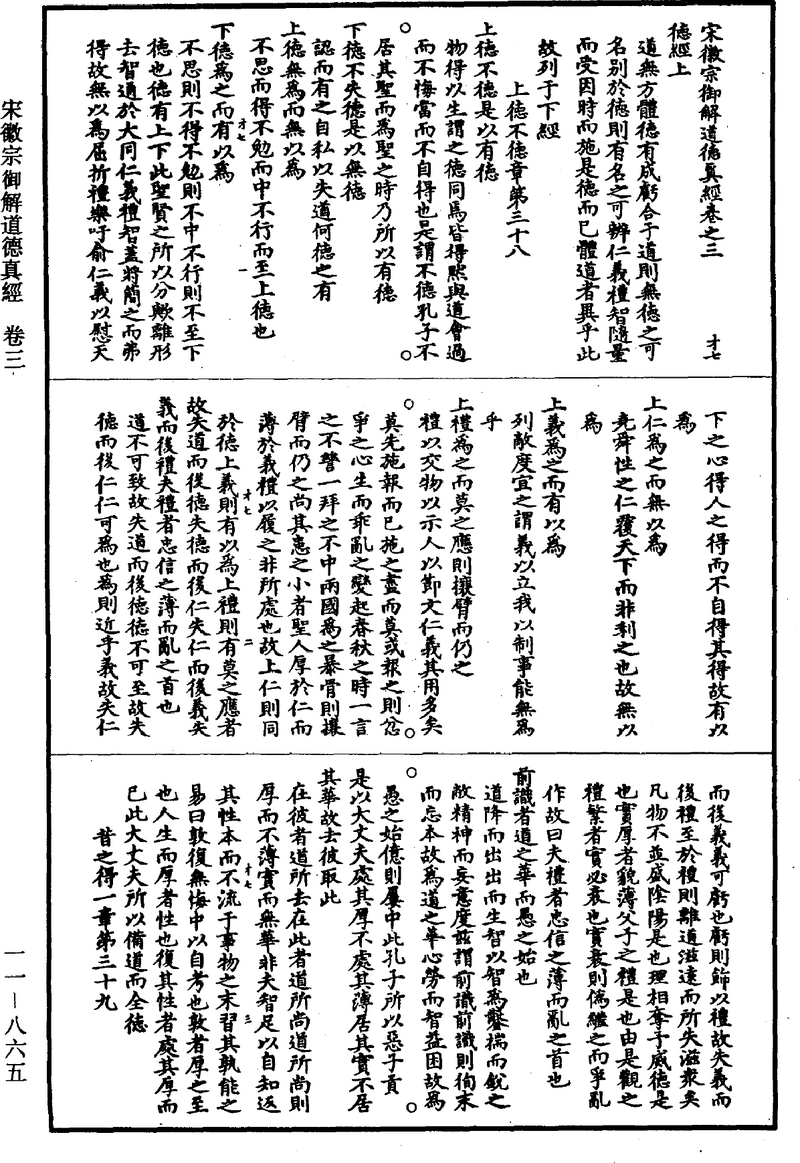 宋徽宗御解道德真經　卷三
一一—八六五
宋徽宗御解道德真經卷之三　才七
德經上
道無方體德有成虧合于道則無德之可
名別於德則有名之可辨仁義禮智隨量
而受因時而施是德而已體道者異乎此
故列于下經
上德不德章第三十八
上德不德是以有德
物得以生謂之德同焉皆得默與道會過
而不悔當而不自得也是謂不德孔子不
居其聖而爲聖之時乃所以有德
下德不失德是以無德
認而有之自私以失道何德之有
上德無爲而無以爲
不思而得不勉而中不行而至上德也
下德爲之而有以爲
不思則不得不勉則不中不行則不至下
德也德有上下此聖賢之所以分歟離形
去智通於大同仁義禮智蓋將簡之而弗
得故無以爲屈折禮樂吁俞仁義以慰天
下之心得人之得而不自得其得故有以
爲
上仁爲之而無以爲
堯舜性之仁覆天下而非利之也故無以
爲
上義爲之而有以爲
列敵度宜之謂義以立我以制事能無爲
乎
上禮爲之而莫之應則攘臂而仍之
禮以交物以示人以節文仁義其用多矣
莫先施報而已施之盡而莫或報之則忿
爭之心生而乖亂之變起春秋之時一言
之不讎一拜之不中兩國爲之暴骨則攘
臂而仍之尚其患之小者聖人厚於仁而
薄於義禮以履之非所處也故上仁則同
於德上義則有以爲上禮則有莫之應者
故失道而後德失德而後仁失仁而後義失
義而後禮夫禮者忠信之薄而亂之首也
道不可致故失道而後德德不可至故失
德而後仁仁可爲也爲則近乎義故失仁
而後義義可虧也虧則飾以禮故失義而
後禮至於禮則離道滋遠而所失滋衆矣
凡物不並盛陰陽是也理相奪予威德是
也實厚者貌薄父子之禮是也由是觀之
禮繁者實必衰也實衰則僞繼之而爭亂
作故曰夫禮者忠信之薄而亂之首也
前識者道之華而愚之始也
道降而出出而生智以智爲鑿揣而銳之
敝精神而妄意度茲謂前識前識則徇末
而忘本故爲道之華心勞而智益困故爲
愚之始億則屢中此孔子所以惡子貢
是以大丈夫處其厚不處其薄居其實不居
其華故去彼取此
在彼者道所去在此者道所尚道所尚則
厚而不薄實而無華非夫智足以自知返
其性本而不流于事物之末習其孰能之
易曰敦復無悔中以自考也敦者厚之至
也人生而厚者性也復其性者處其厚而
已此大丈夫所以備道而全德
昔之得一章第三十九